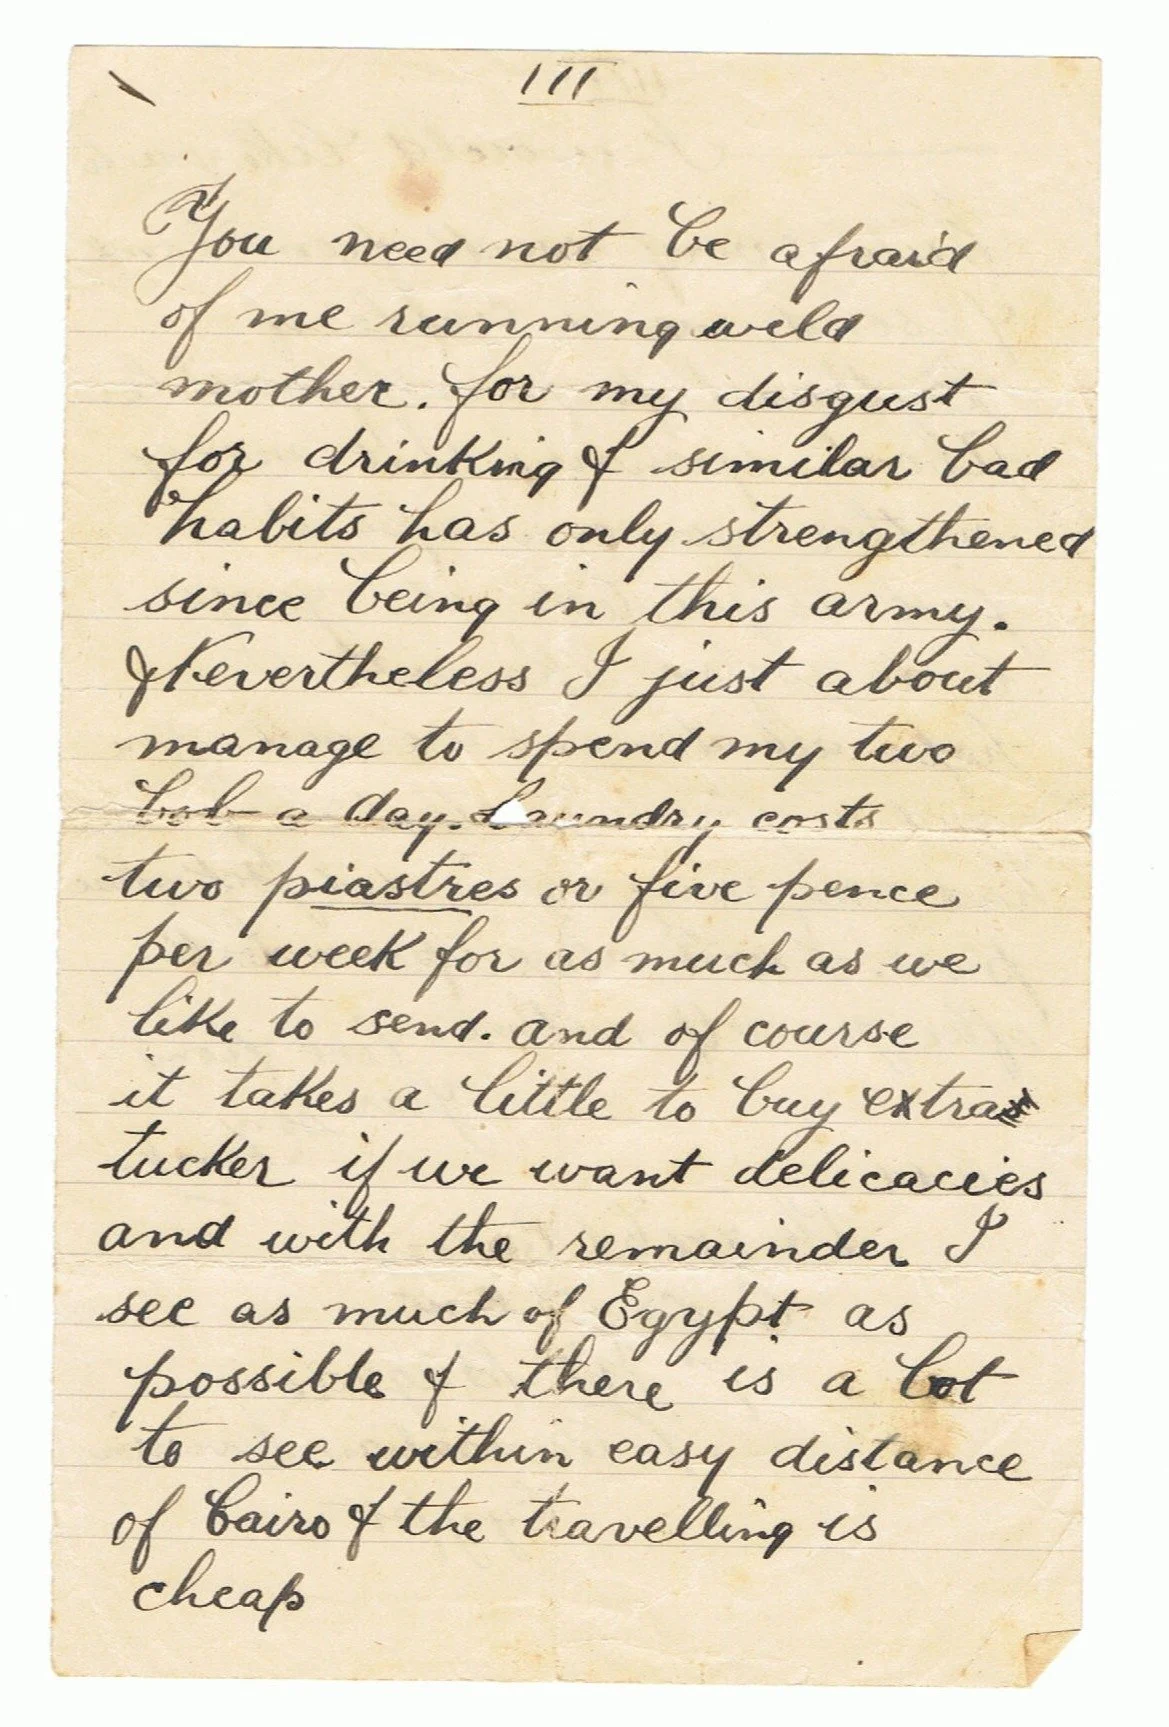 III
You need not be afraid
of me running wild
mother. for my disgust
for drinking & similar bad
habits has only strengthened
since being in this army.
& Nevertheless I just about
manage to spend my two
bob a day. Laundry costs
two piastres or five pence
per week for as much as we
like to send. and of course
it takes a little to buy extra
tucker if we want delicacies
and with the remainder I
see as much of Egypt as
possible & there is a lot
to see within easy distance
of Cairo & the travelling is
cheap